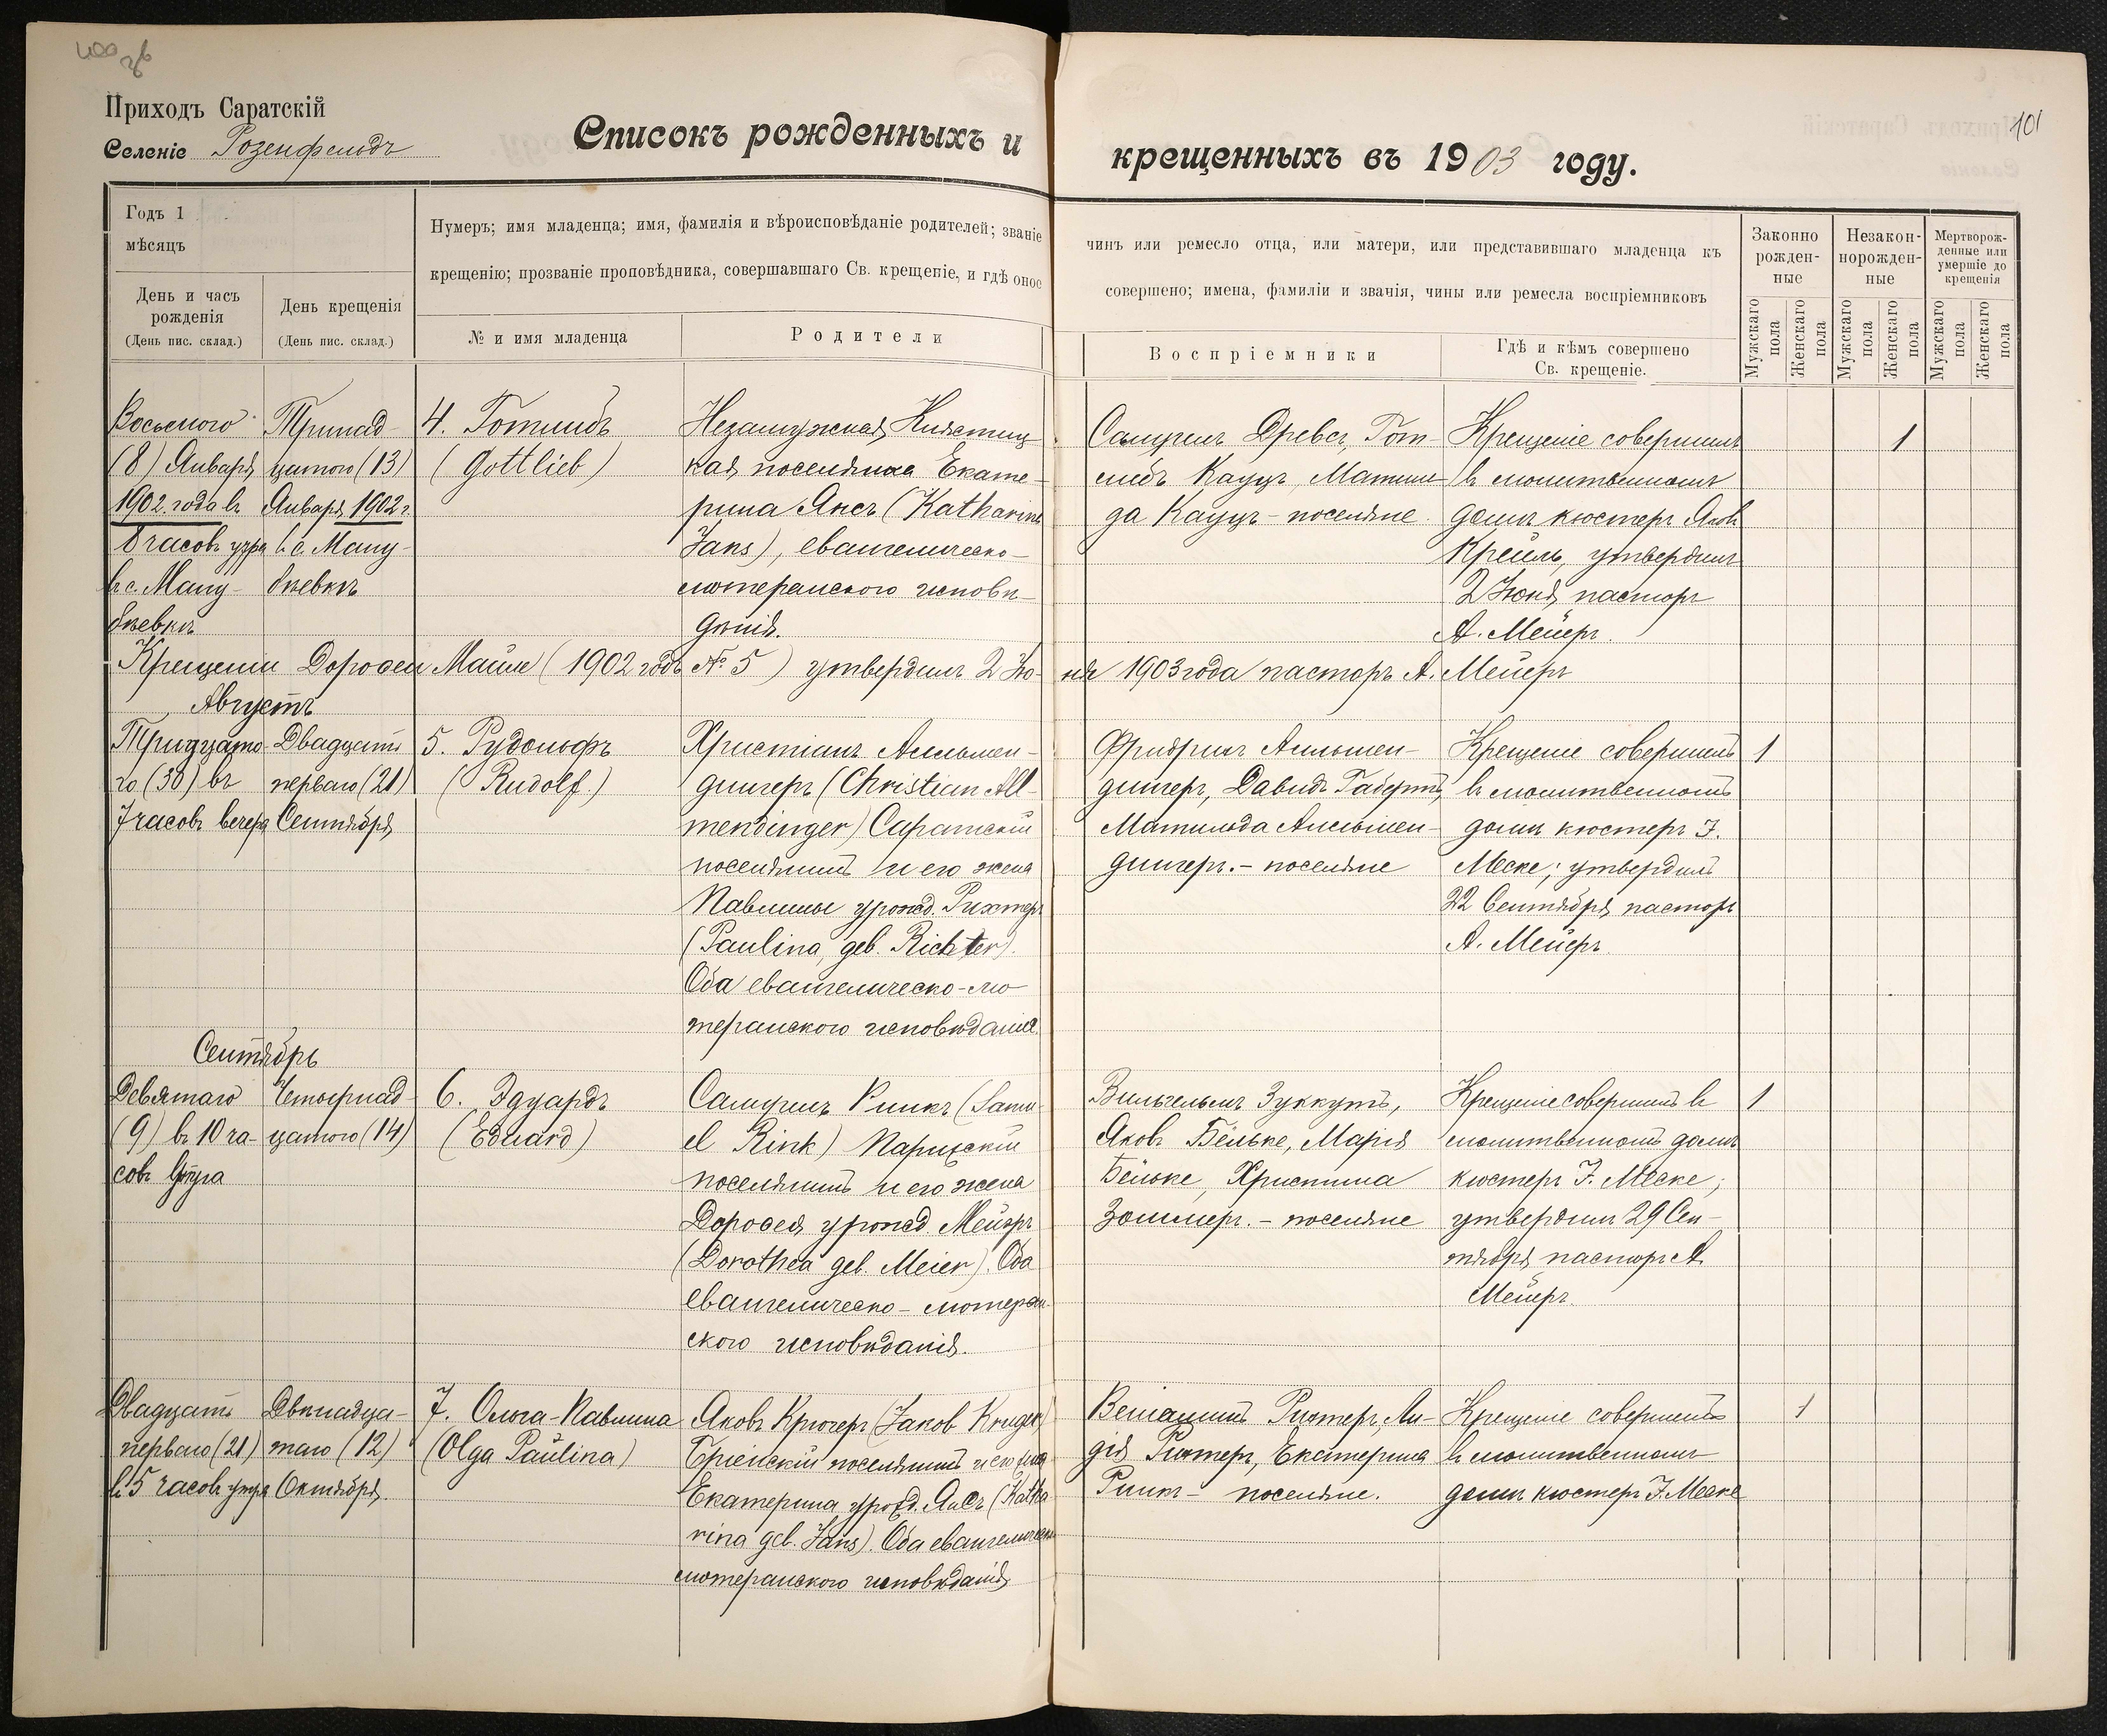 Приходъ Саратскій
Селеніе Розенфельдъ
Списокъ рожденныхъ и крещенныхъ въ 1903 году.
101
Годъ 1
мѣсяцъ
День и часъ рожденія
(День пис. склад.)
День крещенія
(День пис. склад.)
Нумеръ; имя младенца; имя, фамилія и вѣроисповѣданіе родителей; званіе
чинъ или ремесло отца, или матери, или представившаго младенца къ
крещенію; прозваніе проповѣдника, совершавшаго Св. крещеніе, и гдѣ оное
совершено; имена, фамиліи и званія, чины или ремесла воспріемниковъ
№ и имя младенца
Родители
Воспріемники
Гдѣ и кѣмъ совершено
Св. крещеніе.
Законно рожден-ные
Незакон-норожден-ные
Мертворож-денные или умершіе до крещенія
Мужскаго пола
Женскаго пола
Мужскаго пола
Женскаго пола
Мужскаго пола
Женскаго пола
Восьмого
(8) Января
1902 года въ
8 часовъ утра
въ с. Ману-
бѣевкѣ
Тринад-
цатого (13)
Января 1902 г.
въ с. Ману-
бѣевкѣ
4. Готлибъ
(Gottlieb)
Незамужная
кая поселянка Екате-
рина Янсъ (Katharina
Jans), евангелическо-
лютеранского исповѣ-
данія.
Самуилъ Древсъ, Гот-
либъ Кауцъ, Матиль-
да Кауцъ - поселяне.
Крещеніе совершилъ
въ молитвенномъ
домѣ кюстеръ Яковъ
Крейль, утвердилъ
2 Іюня пасторъ
А. Мейеръ.
1
Крещеніе Доротеи Майле (1902 годъ № 5) утвердилъ 2 Ію- ня 1903 года пасторъ А. Мейеръ
Августъ
Тридцато-
го (30) въ
7 часовъ вечера
Двадцать
перваго (21)
Сентября
5. Рудольфъ
(Rudolf.)
Христіанъ Алльмен-
дингеръ (Christian All-
mendinger) Саратскій
поселянинъ и его жена
Павлина урожд. Рихтеръ
(Paulina, geb. Richter).
Оба евангелическо-лю-
теранского исповѣданія.
Фридрихъ Алльмен-
дингеръ, Давидъ Габертъ,
Матильда Алльмен-
дингеръ. - поселяне
Крещеніе совершилъ
въ молитвенномъ
домѣ кюстеръ J.
Меске; утвердилъ
22 Сентября пасторъ
А. Мейеръ.
1
Сентябрь
Девятаго
(9) въ 10 ча-
совъ утра
Четырнад-
цатого (14)
6. Эдуардъ
(Eduard)
Самуилъ Ринкъ (Samu-
el Rink) Парижскій
поселянинъ и его жена
Доротея, урожд. Мейеръ
(Dorothea geb. Meier). Оба
евангелическо-лютеран-
ского исповѣданія.
Вильгельмъ Зуккутъ,
Яковъ Бёльке, Марія
Бёльке, Христина
Золлнеръ. - поселяне
Крещеніе совершилъ въ
молитвенномъ домѣ
кюстеръ J. Меске;
утвердилъ 29 Сен-
тября пасторъ А.
Мейеръ
1
Двадцать
перваго (21)
въ 5 часовъ утра
Двѣнадца-
таго (12)
Октября.
7. Ольга-Павлина
(Olga Paulina)
Яковъ Крюгеръ (Jakob Kruger)
Бріенскій поселянинъ и его жена
Екатерина урожд. Янсъ (Katha-
rina geb. Jans). Оба евангелическо
лютеранского исповѣданія
Веніаминъ Рихтеръ, Ли-
дія Рихтеръ, Екатерина
Ринкъ - поселяне.
Крещеніе совершилъ
въ молитвенномъ
домѣ кюстеръ J. Меске
1